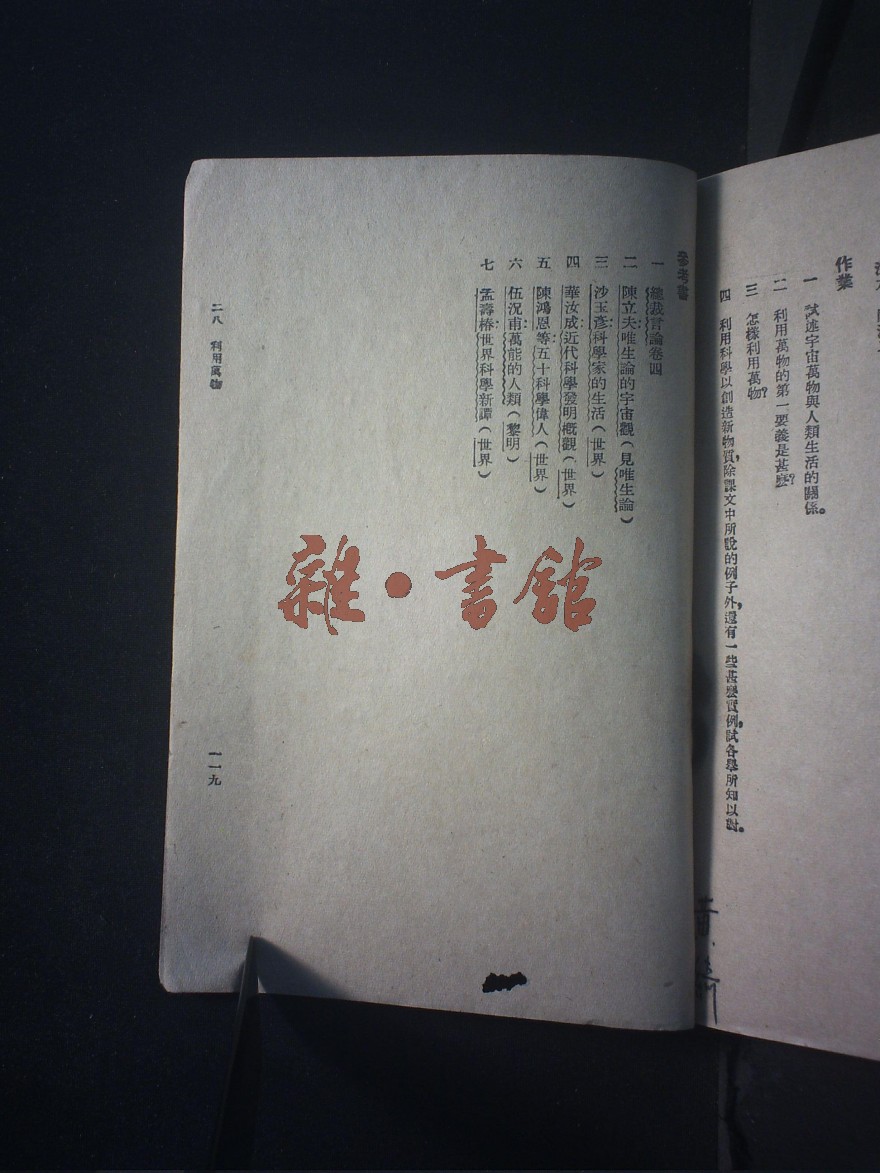 作業
一 試述宇宙萬物與人類生活的關係。
二 利用萬物的第一要義是甚麼?
三 怎樣利用萬物?
四 利用科學以創造新物質,除課文中所設的例子外,還有一些甚麼實例,試各舉所知以對。
參考書
一 總裁言論卷四
二 陳立夫唯生論的宇宙觀(見唯生論)
三 沙玉彥科學家的生活(世界)
四 華汝成近代科學發明概觀(世界)
五 陳鴻恩等五十科學偉人(世界)
六 伍況甫萬能的人類(黎明)
七 孟壽椿世界科學新譚(世界)
二八 利用萬物
一一九
雜·書館